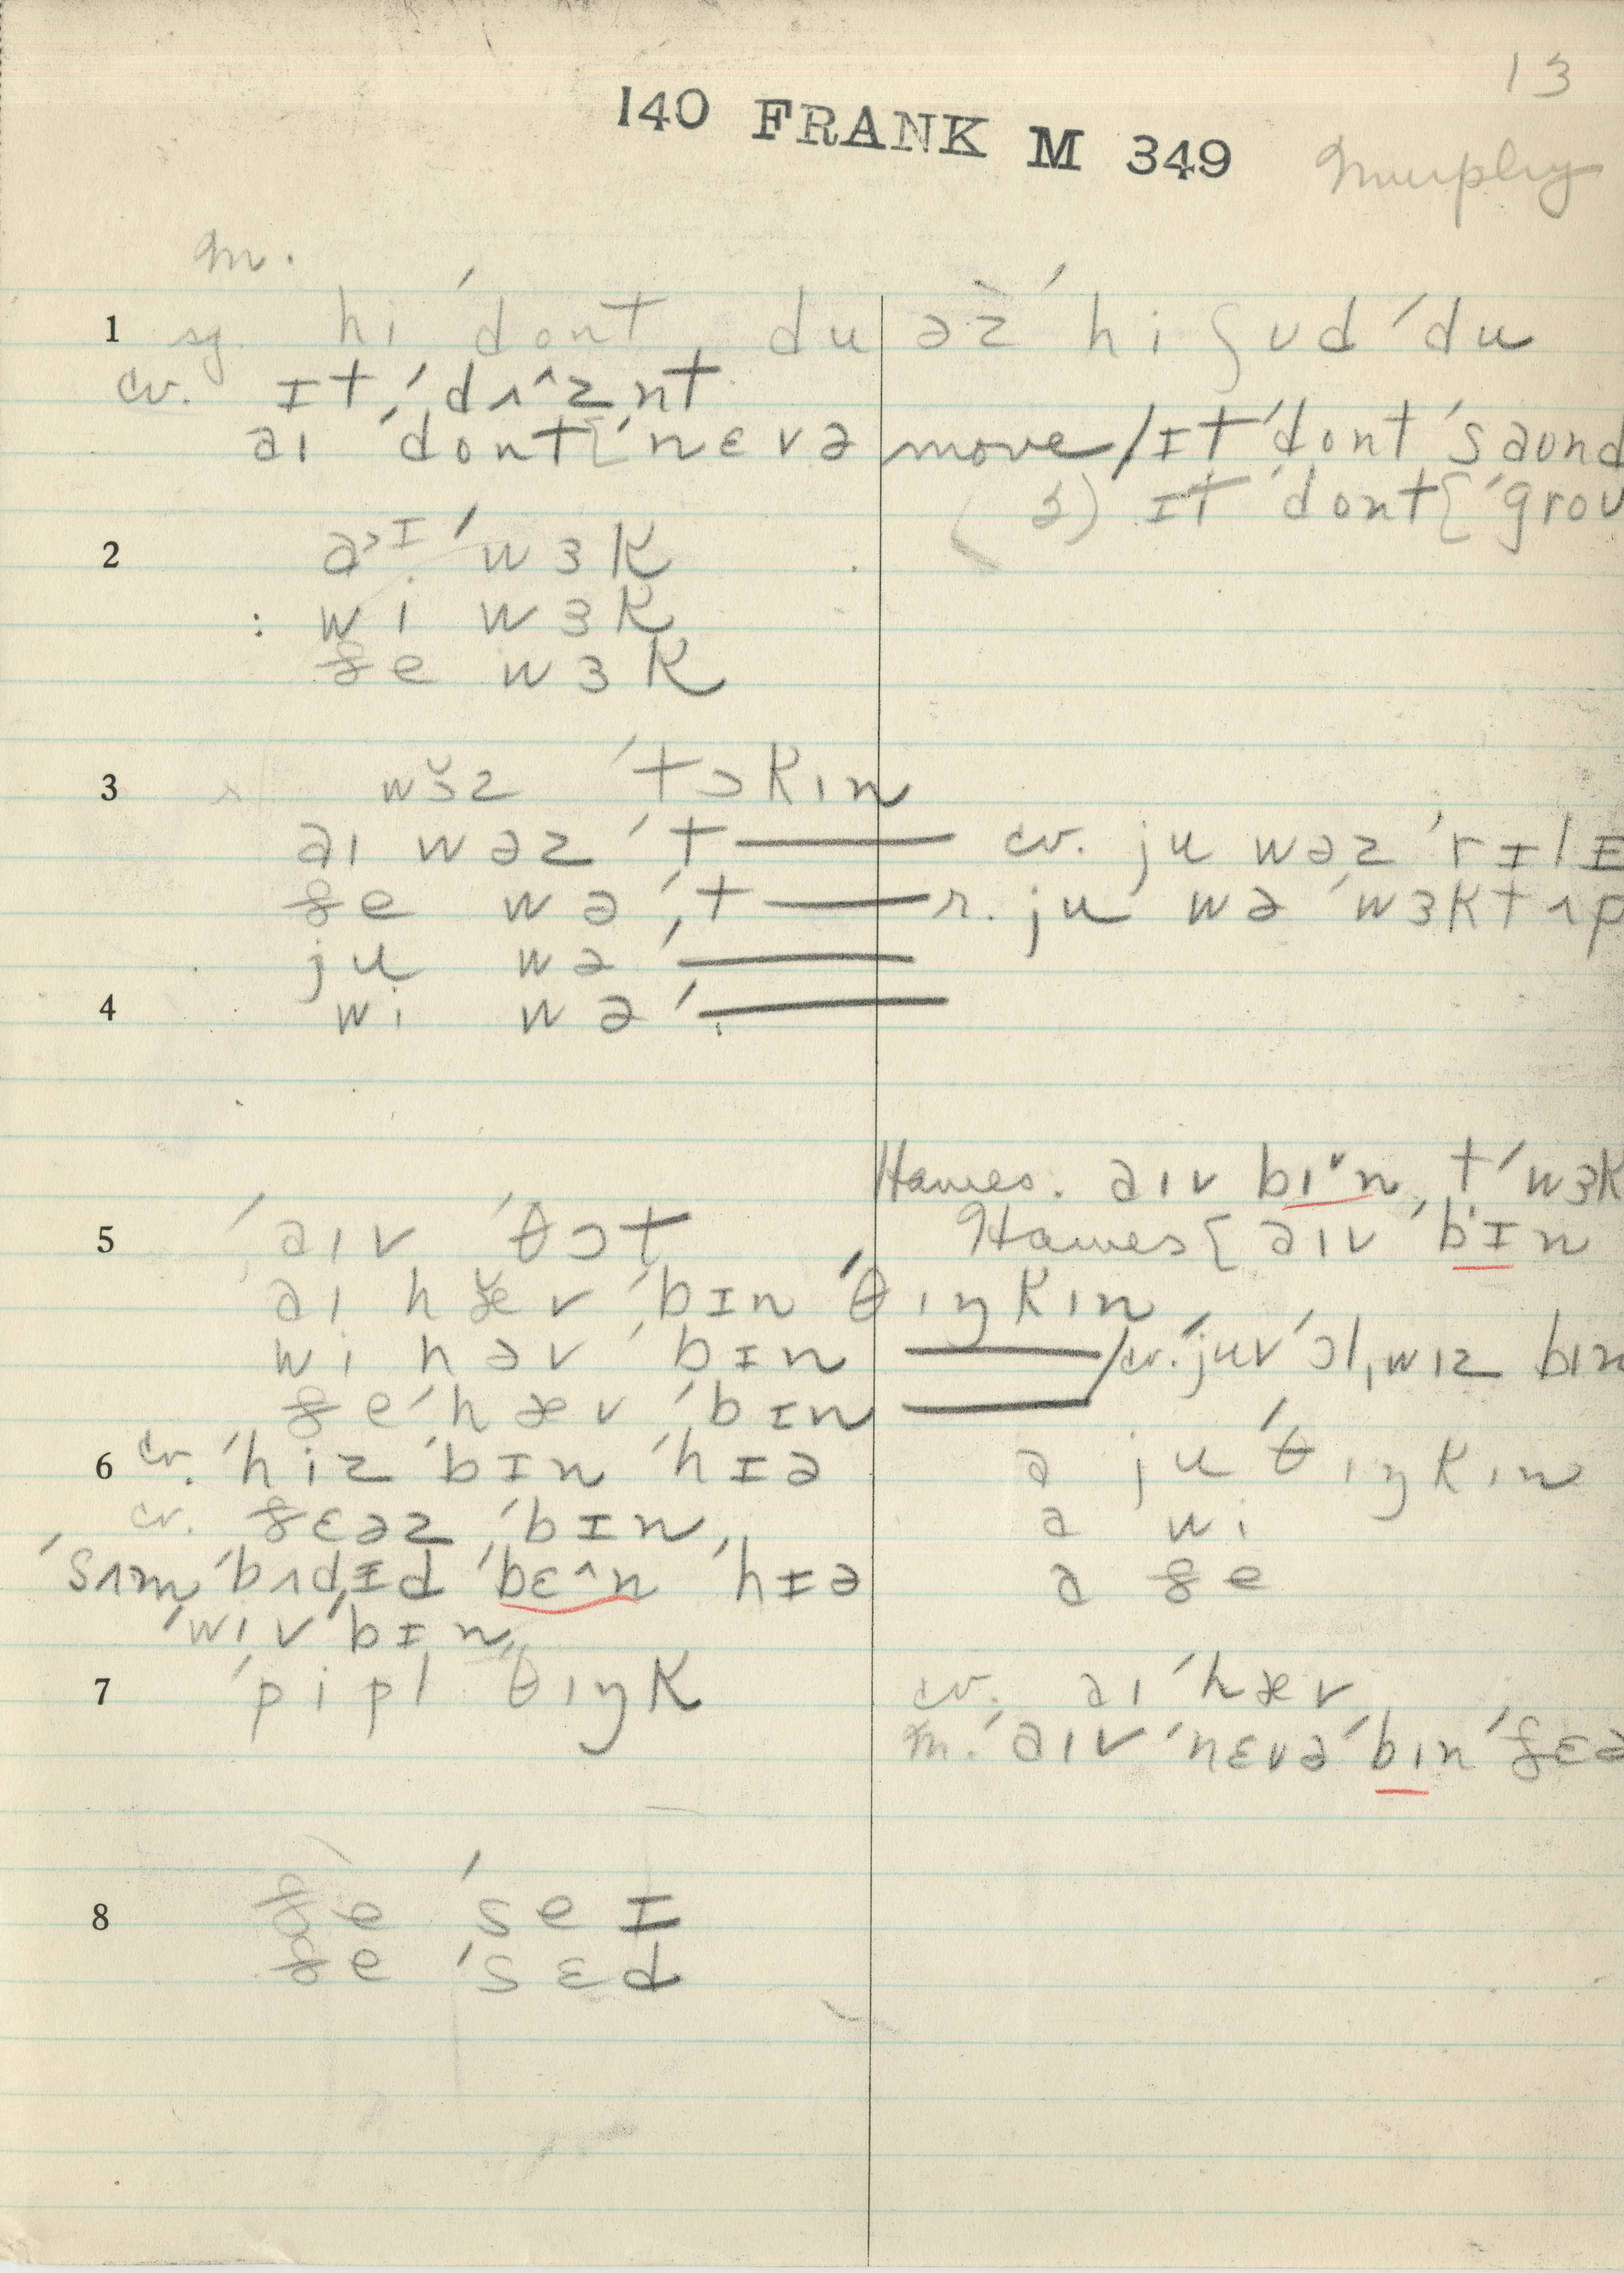 13
140 FRANK M 349
Murphy
m.
1 sg. hi ˈdont du əz̆ ˈhi ʃʊd ˈdu
cv. ɪt ˈdʌ^znt
aɪ ˈdont{ˈnɛvə move/ɪt ˈdont ˈsaʊnd
(s) ɪt ˈdont{ˈgroʊ
2 a>ɪ ˈwɜk
: wi wɜk
ðe wɜk
3 wɜ̆z ˈtɔkɪn
aɪ wəz ˈt—— cv. ju wəz ˈrɪlɪ
ðe wə ˈt—— r. ju wə ˈwɜkt ʌp
ju wə ˈ——
4 wi wə ˈ——
Hawes. aɪv bɪˇn, tˈwɜk
5 ˈaɪv ˈθɔt Hawes{ aɪv ˈbɪn
aɪ hæ̆v ˈbɪn ˈθɪŋkɪn
wi həv ˈbɪn ——/cv. ˈjuv ˈɔlˌwɪz bɪn
ðe ˈhæv ˈbɪn ——
6 cv. ˈhiz ˈbɪn ˈhɪə ə ju ˈθɪŋkɪn
cv. ðɛəz ˈbɪn ə wi
ˈsʌmˈbʌdɪd ˈbɛ^n ˈhɪə ə ðe
ˈwɪvˈbɪn
7 ˈpipl ˈθɪŋk cv. aɪ ˈhæv
m. ˈaɪv ˈnɛvə ˈbɪn ˈðɛə
8 ðe ˈseɪ
ðe ˈsɛd